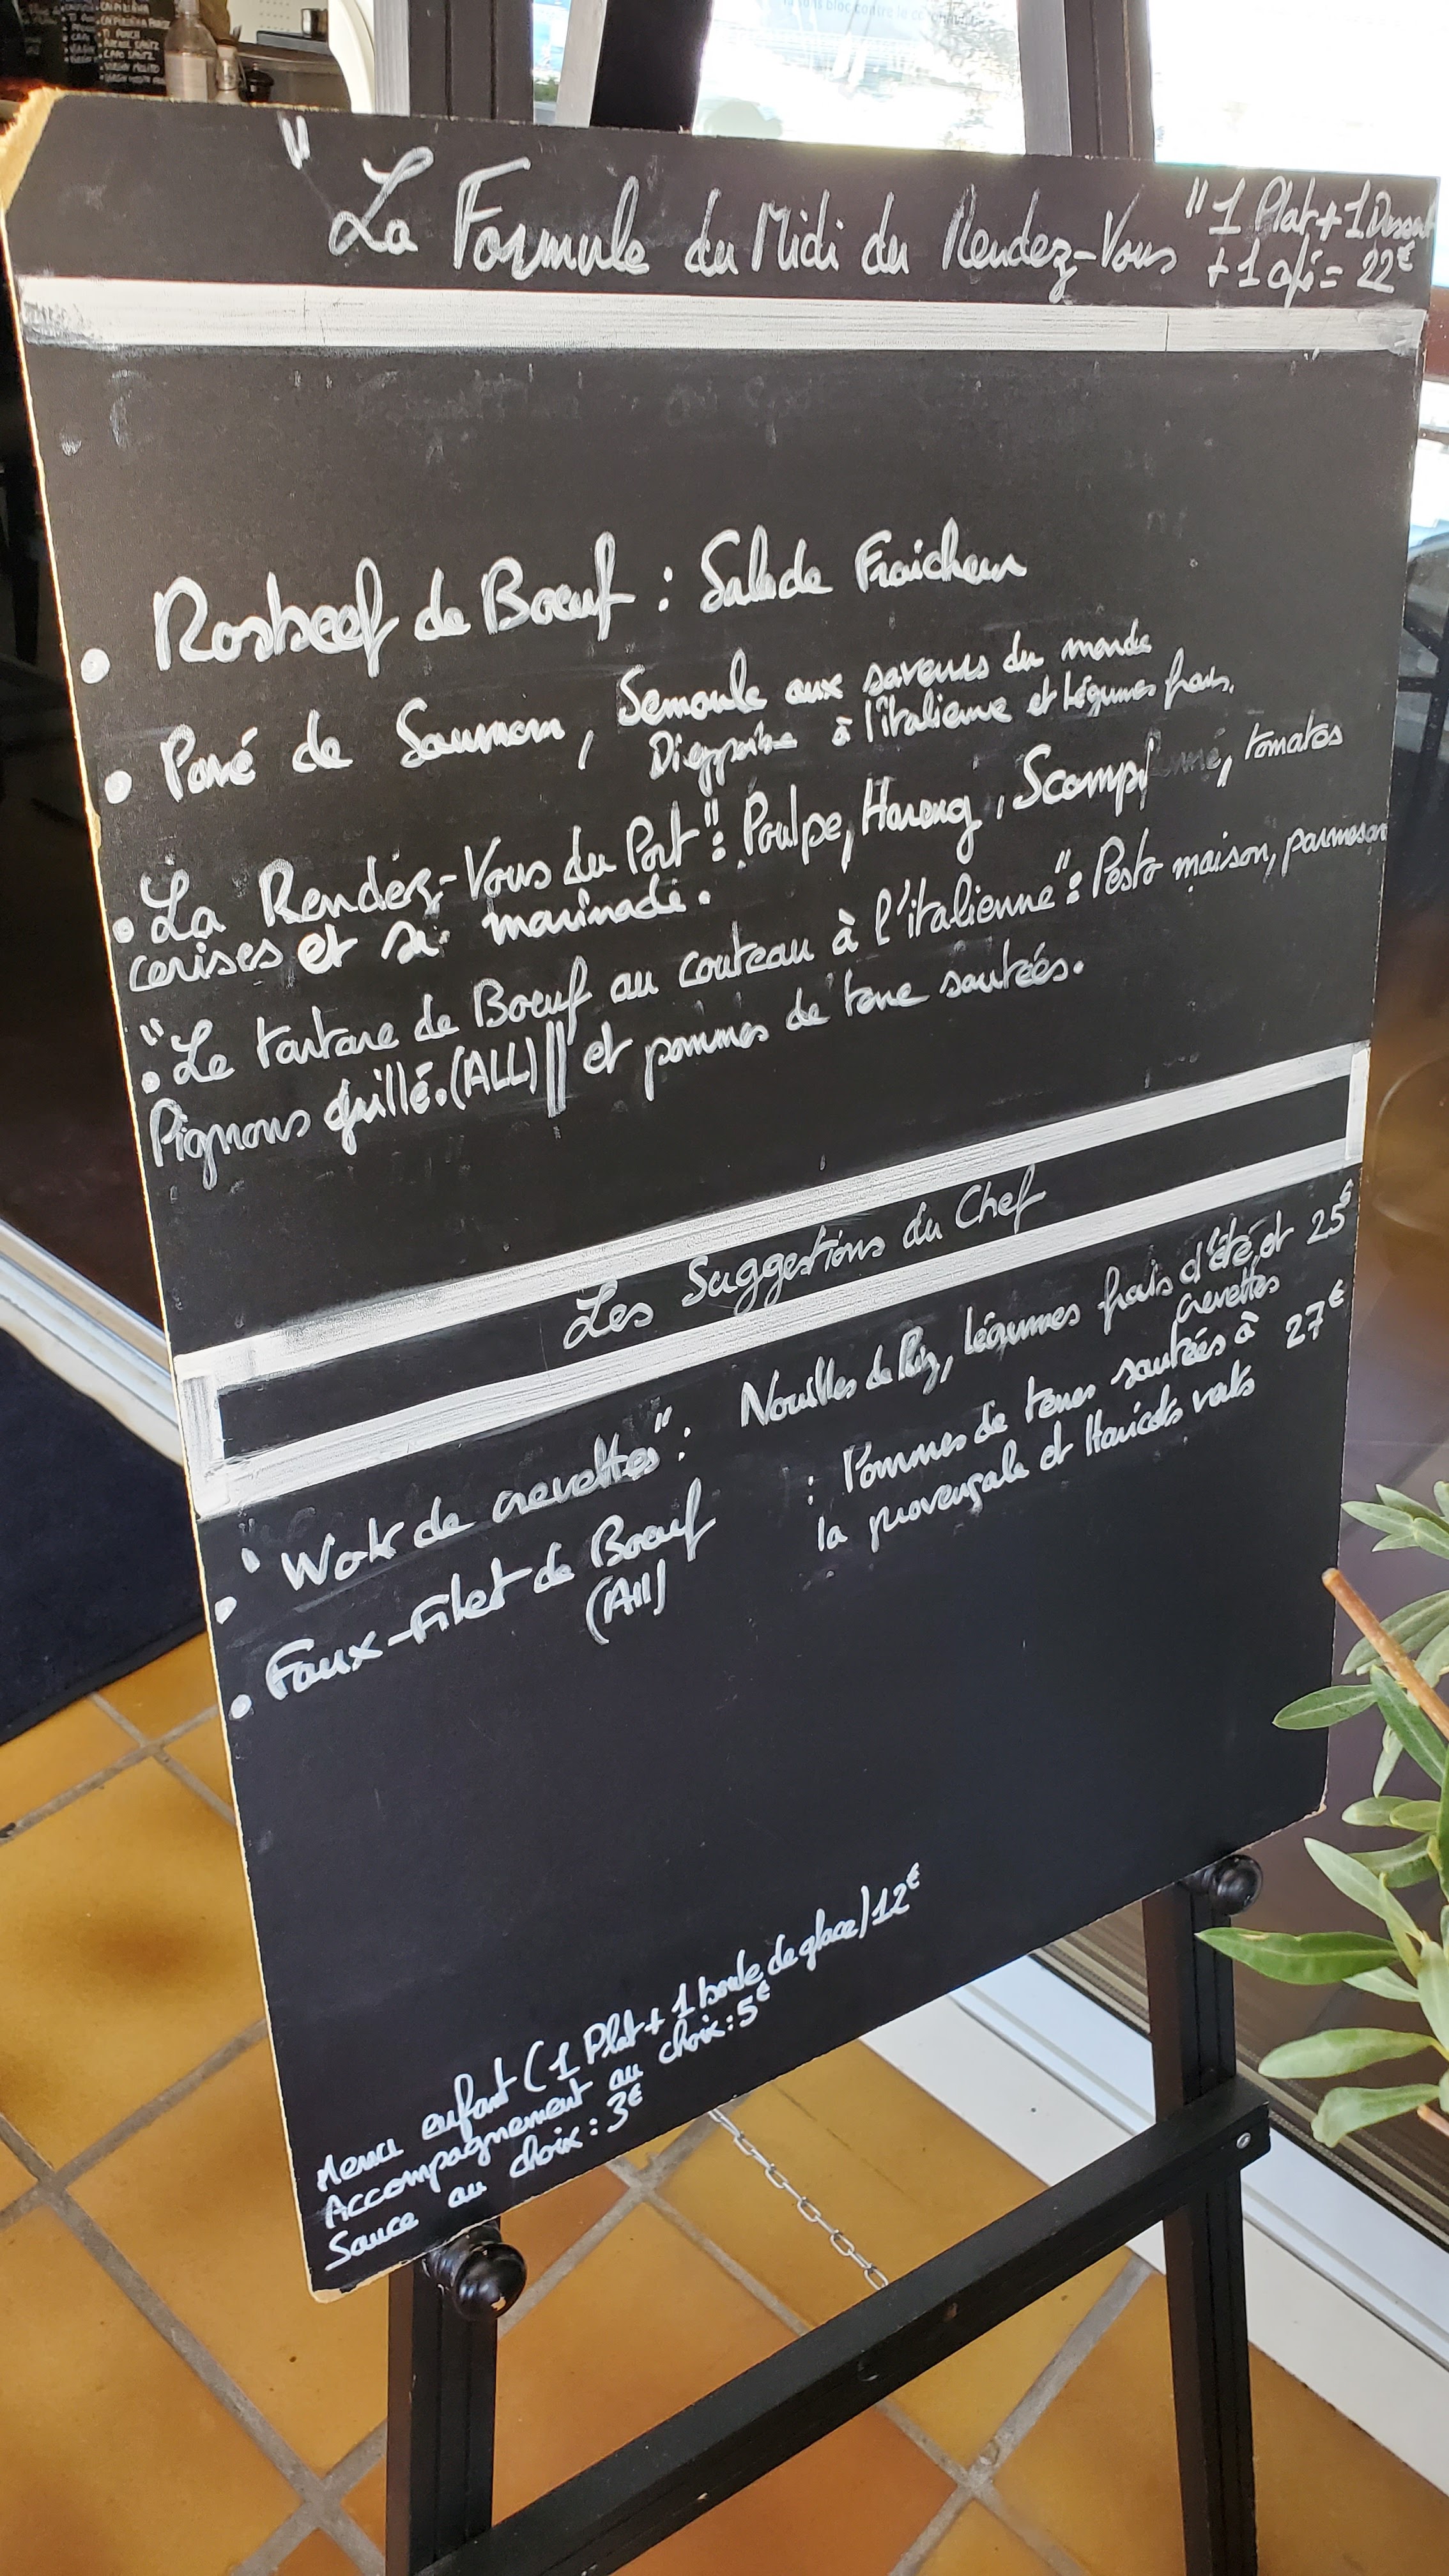 " La Formule du Midi du Rendez-Vous "
1 Plat + 1 Dessert
+ 1 café = 22€
• Rosbeef de Boeuf : Salade Fraicheur
• Pavé de Saumon, Semoule aux saveurs du monde
Dieppoise à l'italienne et Légumes frais.
• "La Rendez-Vous du Port": Poulpe, Hareng, Scampi, tomates
cerises et sa marinade.
• "Le tartare de Boeuf au couteau à l'italienne": Pesto maison, parmesan
Pignons grillé. (ALL) || et pommes de terre sautées.
Les Suggestions du Chef
• "Wok de crevettes": Nouilles de Riz, légumes frais d'été et 25€
crevettes
• Faux-Filet de Boeuf : Pommes de terres sautées à 27€
(All) la provençale et Haricots verts
Menu enfant (1 Plat + 1 boule de glace) 12€
Accompagnement au choix : 5€
Sauce au choix : 3€
VIRGIN MOJITO